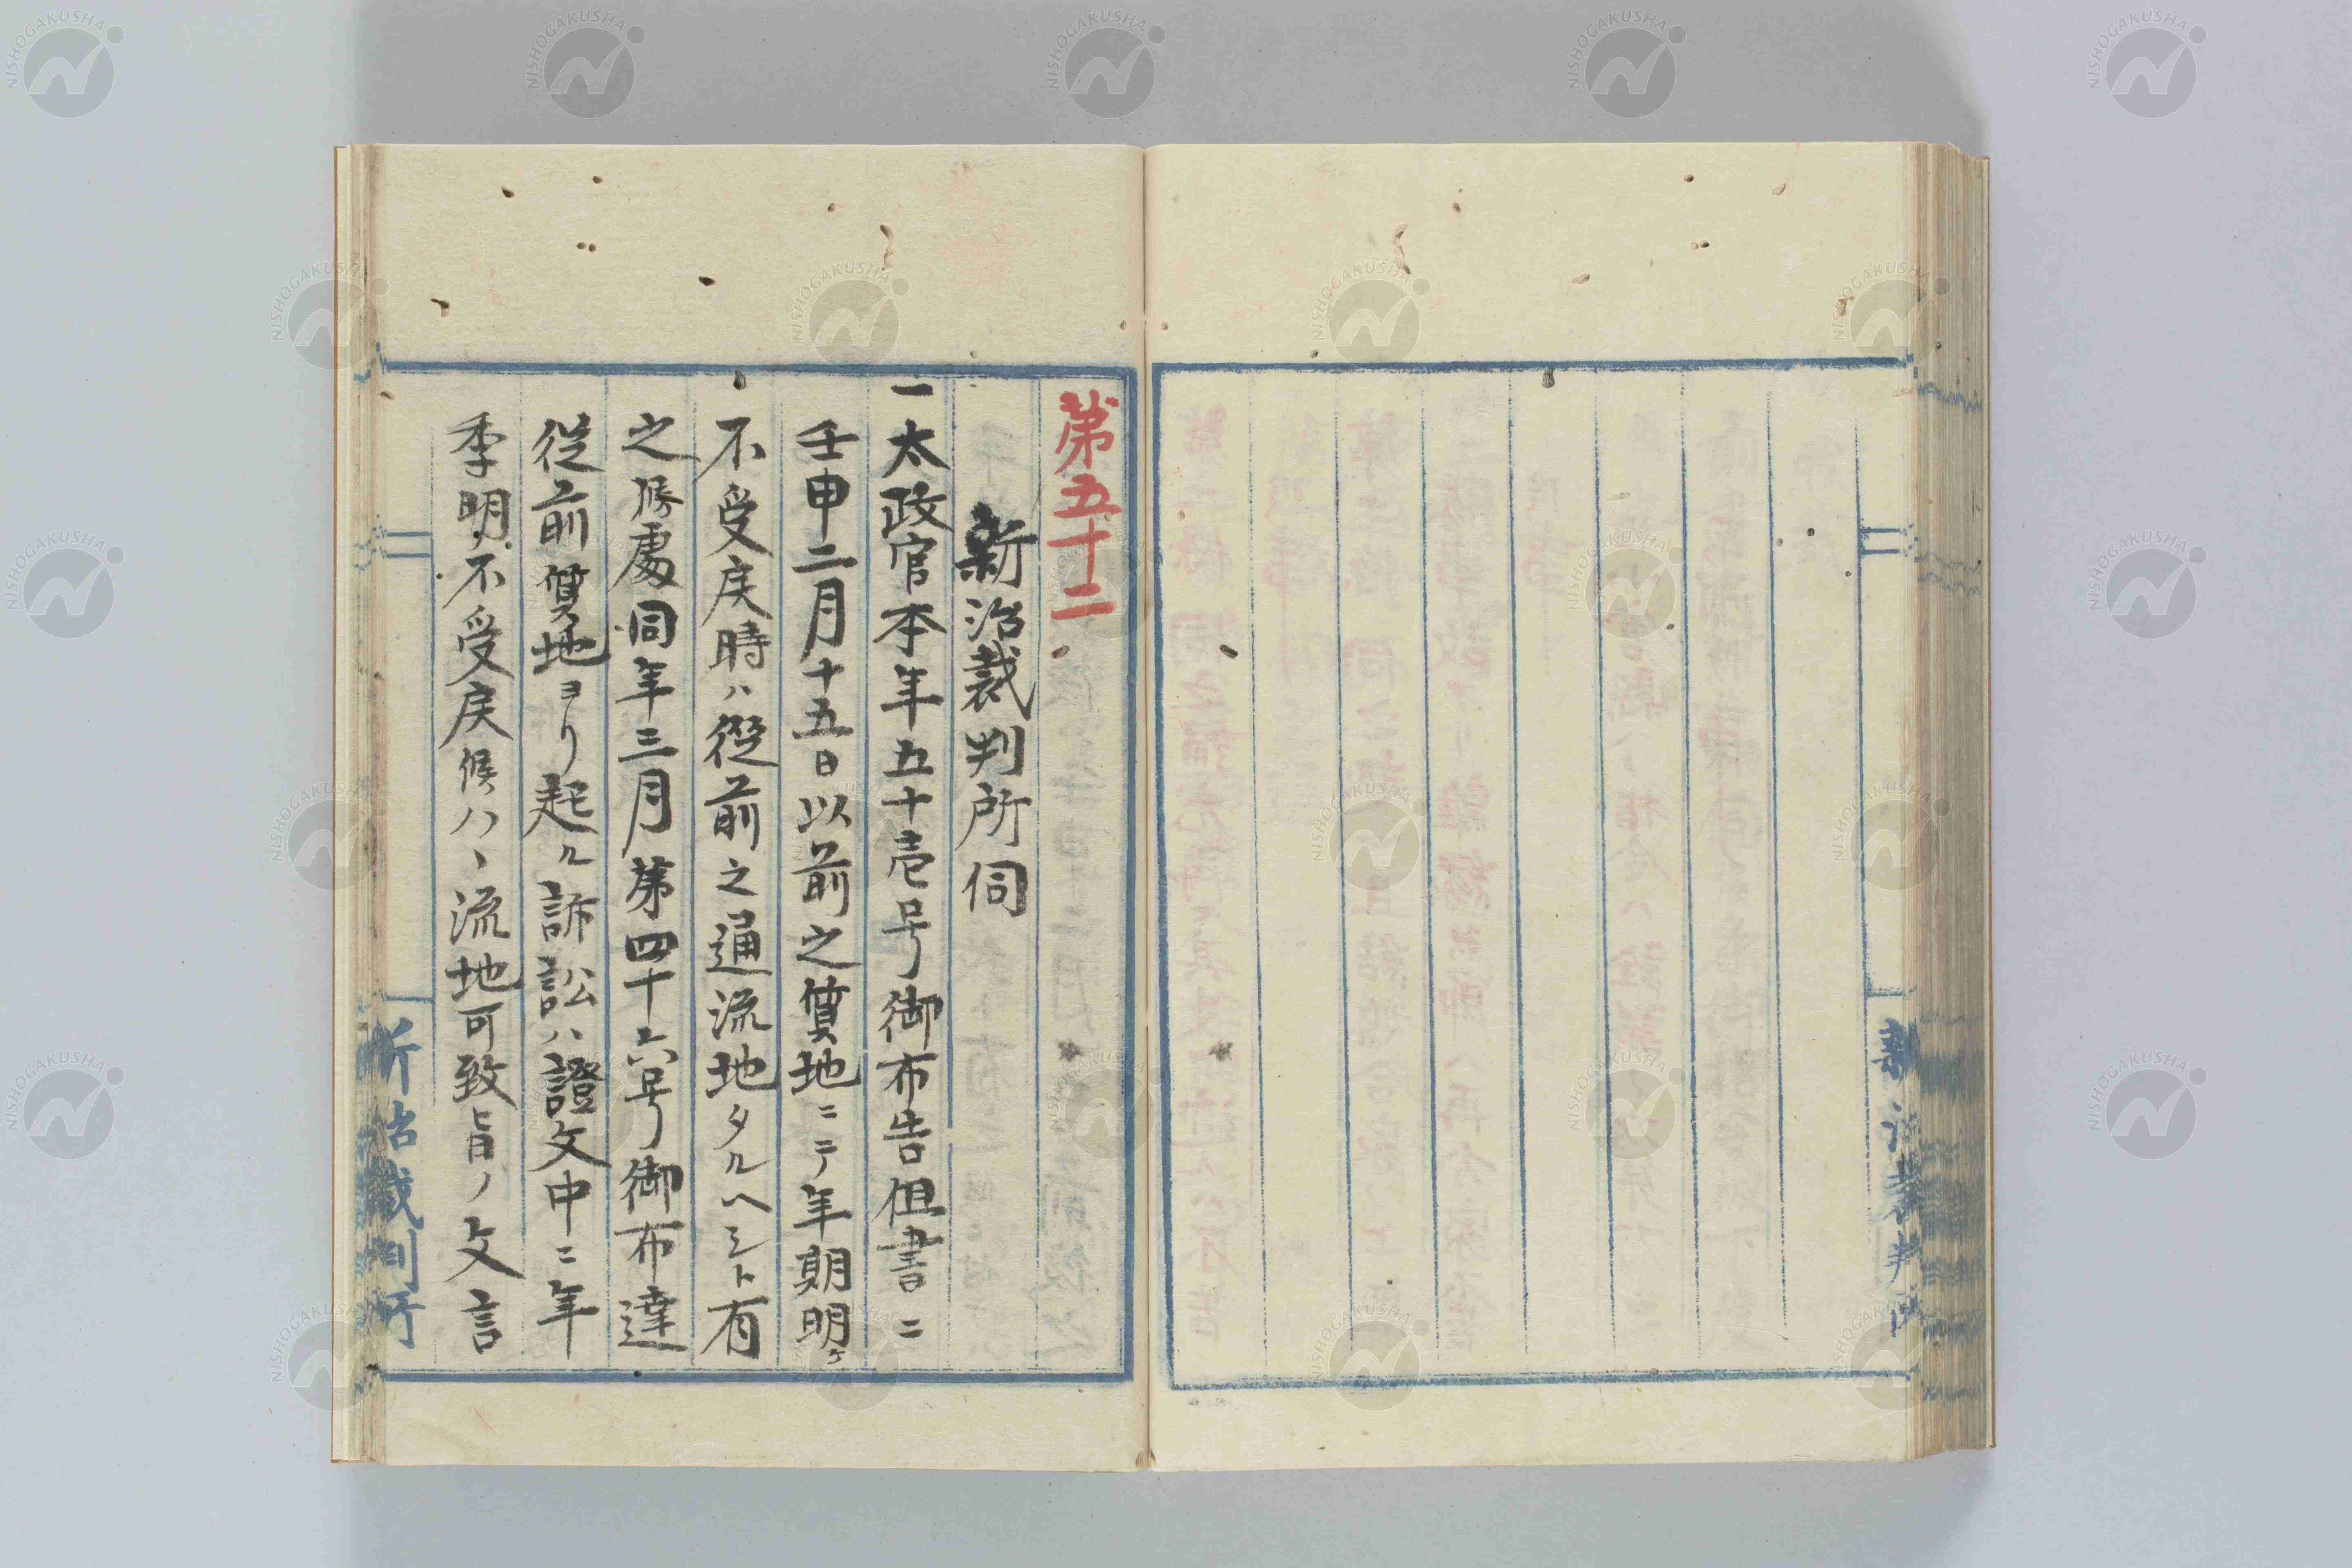 第五十二
新治裁判所伺
一太政官本年五十壱号御布告但書ニ
壬申二月十五日以前之質地ニテ年期明ケ
不受戻時ハ従前之通流地タルヘシト有
之候處同年三月第四十六号御布達
従前質地ヨリ起ル訴訟ハ證文中ニ年
季明不受戻候ハヽ流地可致旨ノ文言
新治裁判所
新治裁判所
NISHOGAKUSHA